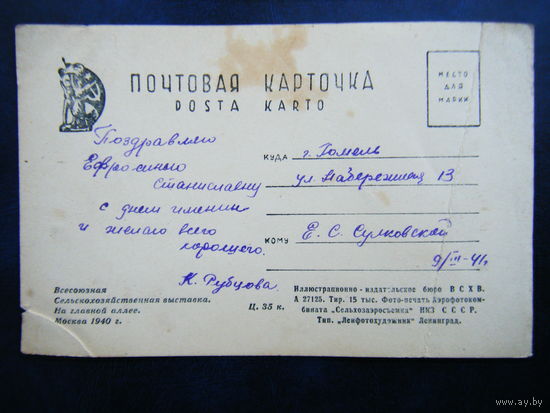 ПОЧТОВАЯ КАРТОЧКА
POSTA KARTO
МЕСТО
ДЛЯ
МАРКИ
Поздравляю
Ефросинью
Станиславну
с днем именин
и желаю всего
хорошего.
Н. Рубцова
КУДА г. Гомель
ул. Набережная 13
КОМУ Е. С. Сулковской
9/III-41г
Всесоюзная
Сельскохозяйственная выставка.
На главной аллее.
Москва 1940 г.
Ц. 35 к.
Иллюстрационно-издательское бюро ВСХВ.
А 27125. Тир. 15 тыс. Фото-печать Аэрофотоком-
бината „Сельхозаэросъемка" НКЗ СССР.
Тип. „Ленфотохудожник" Ленинград.
www.ay.by